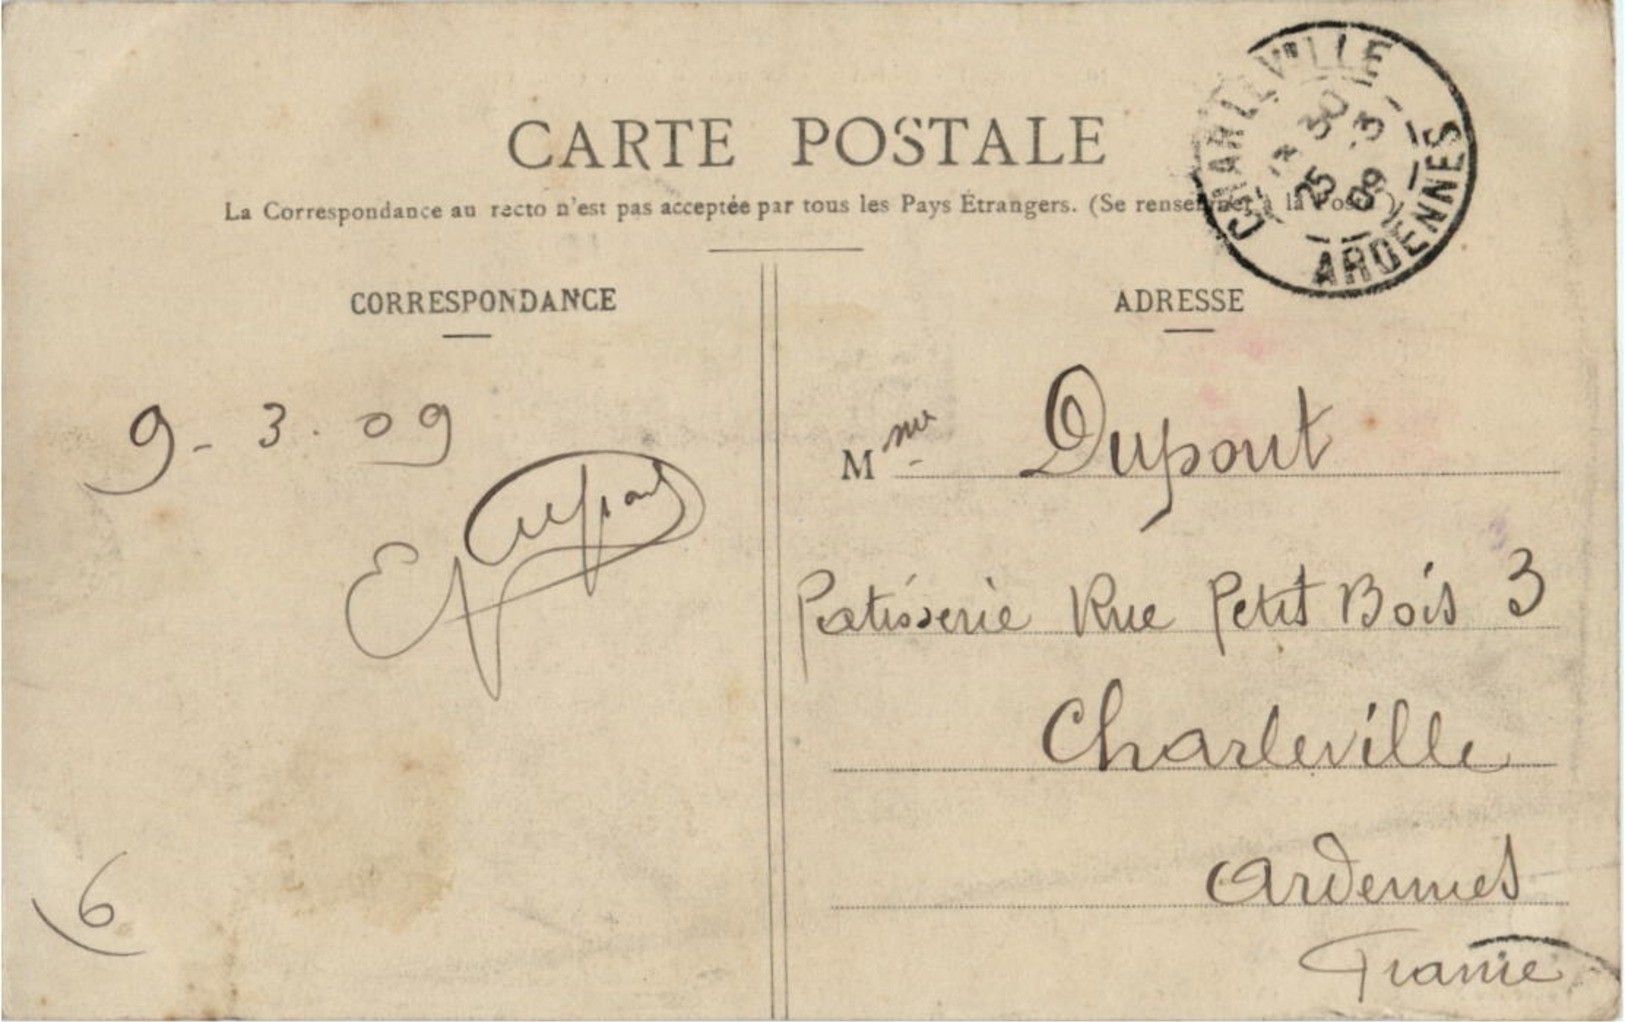 CARTE POSTALE
La Correspondance au recto n'est pas acceptée par tous les Pays Étrangers. (Se renseigner à la Poste)
CHARLEVILLE
30
25 -3
09
ARDENNES
CORRESPONDANCE
ADRESSE
9-3.09
E Dupont
Mme Dupont
Patisserie Rue Petit Bois 3
Charleville
Ardennes
France
6